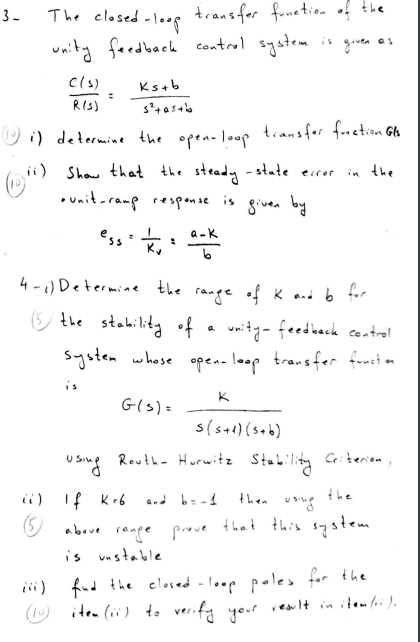 3- The closed-loop transfer function of the
unity feedback control system is given as
C(s)/R(s) = Ks+b / s²+as+b
(10) i) determine the open-loop transfer fnction G(s
(10) ii) Show that the steady-state error in the
unit-ramp response is given by
ess = 1/Kv = a-K/b
4-i) Determine the range of K and b for
(5 the stability of a unity-feedback control
system whose open-loop transfer funct n
is
G(s) = K / s(s+1)(s+b)
using Routh-Hurwitz Stability Criterion,
ii) If K=6 and b=-1 then using the
(5) above range prove that this system
is unstable
iii) find the closed-loop poles for the
(10) item (ii) to verify your result in item (ii).